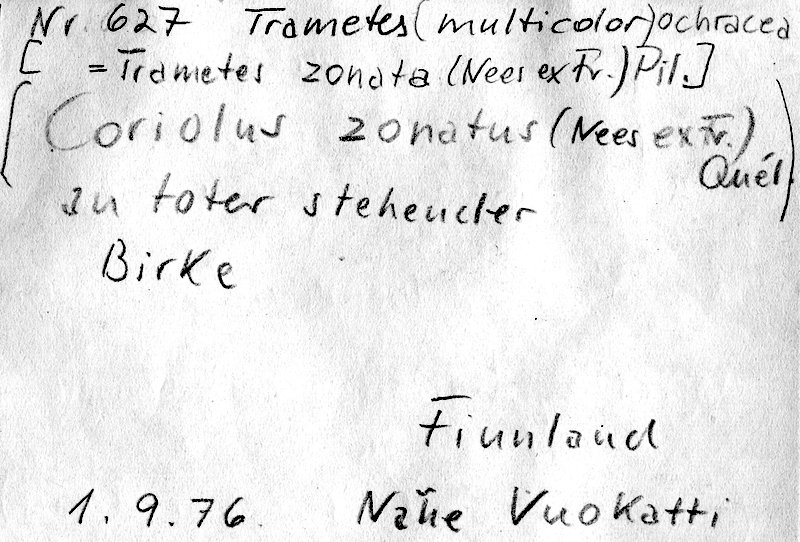 Nr. 627 Trametes (multicolor) ochracea
[ = Trametes zonata (Nees ex Fr.) Pil.]
(Coriolus zonatus (Nees ex Fr.)
Quél.)
an toter stehender
Birke
Finnland
1.9.76. Nähe Vuokatti